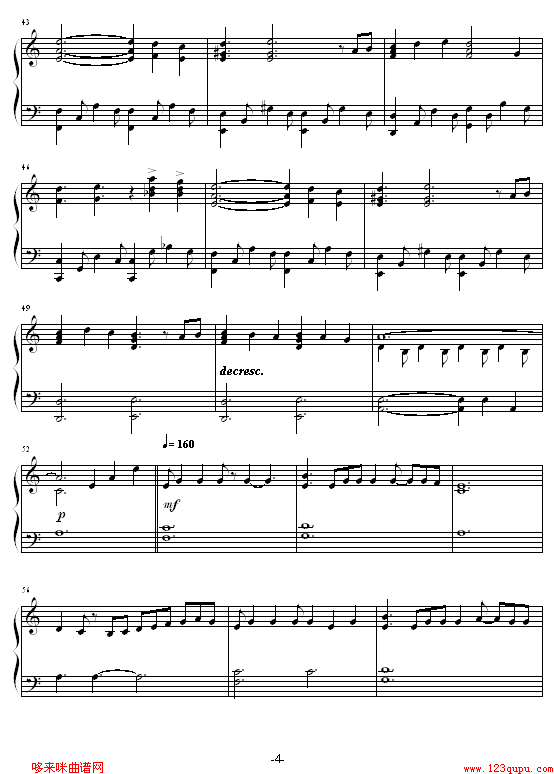 43
46
49
decresc.
52
= 160
p
mf
56
-4-
哆来咪曲谱网
www.123qupu.com